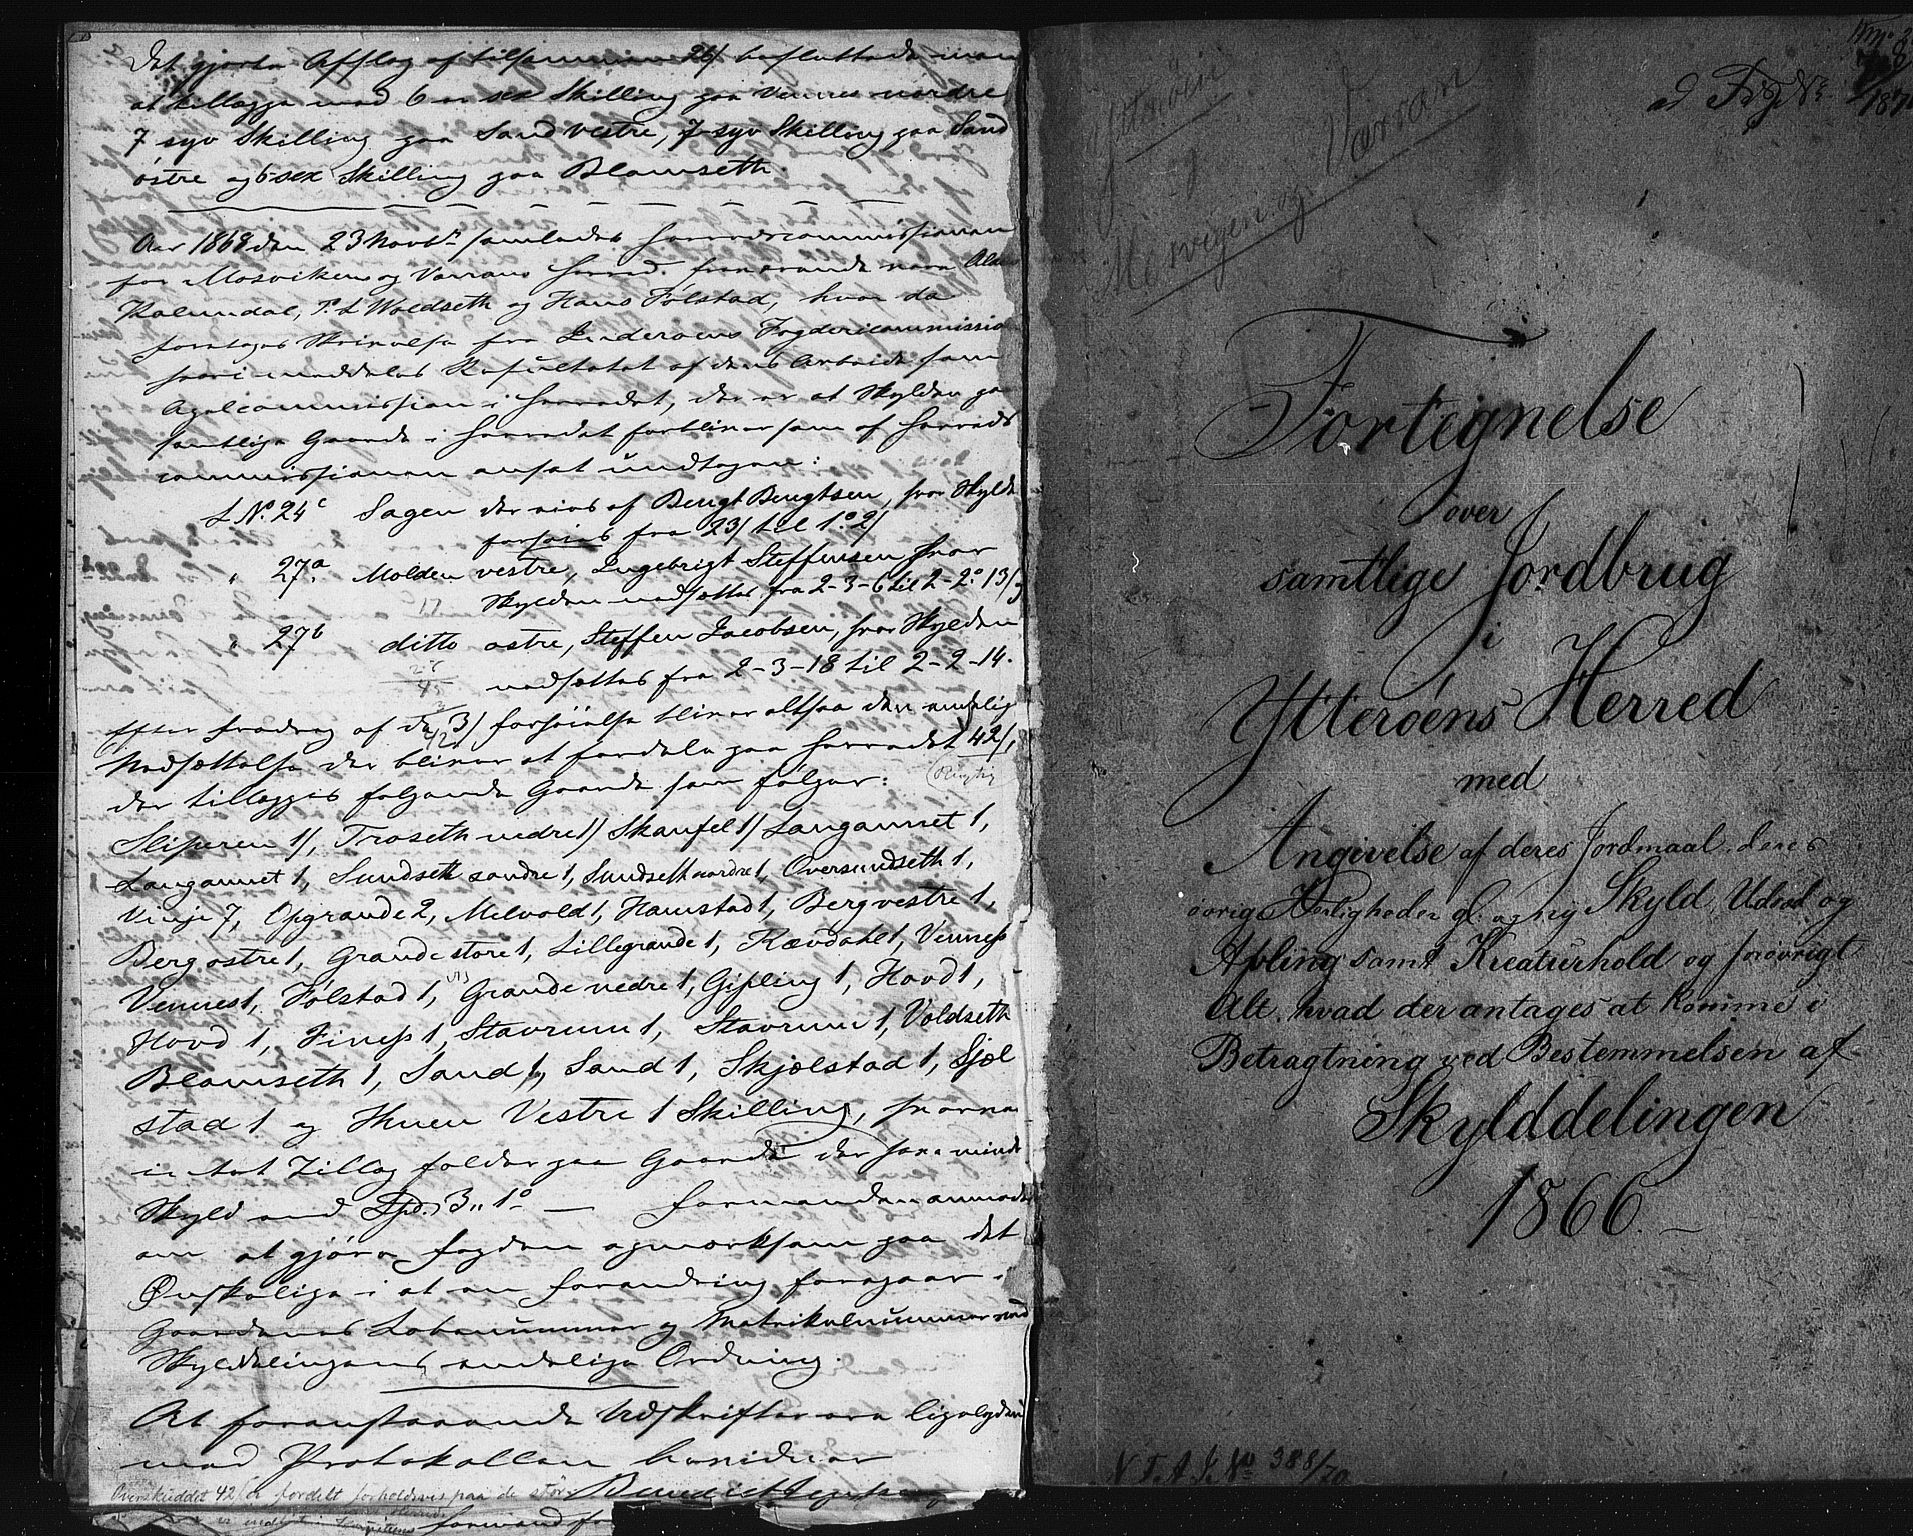 det gjorte Afslag af tilsammen 26/ besluttede man
at tillægge med 6 er sex Skilling paa Vennes nordre
7 syv Skilling paa Sand vestre, 7 syv Skilling paa Sand
østre og 6 sex Skilling paa Blomseth.
Aar 1869 den 23 Novbr samledes Herredscommissionen
for Mosviken og Varrans Herred. fremmødende vare
Kolundal, P. L Woldseth og Hans Følstad, hvor da
foretoges Skrivelse fra Inderøens Fogdericommission
hvori meddeles Resultatet af dens Arbeide som
Apelcommission i Herredet, der er at Skylden paa
samtlige Gaarde i Herredet forbliver som af Herreds
commissionen ansat undtagen:
L No. 24c Sagen der eies af Bengt Bengtsen, hvor Skylde
forhøies fra 23/ til 1.0 2/
" 27a Molden vestre, Ingebrigt Steffensen hvor
Skylden nedsættes fra 2-3-6 til 2-2-13/
" 27b ditto østre, Steffen Jacobsen, hvor Skylden
nedsættes fra 2-3-18 til 2-2-14.
Efter fradrag af de 3/ forhøielse bliver altsaa den endelig
Nedsættelse der bliver at fordele paa Herredet 42/,
(Rigtig
der tillægges følgende Gaarde som følger:
Sliperen 1/, Troseth nedre 1/ Skaufel 1/ Langamnet 1,
Langamnet 1, Sundseth søndre 1, Sundseth nordre 1, Oversundseth 1,
Vinje 7, Opgrande 2, Melvold 1, Hamstad 1, Berg vestre 1,
Berg østre 1, Grande store 1, Lillegrande 1, Kævdahl 1, Vennes
Vennes 1, Følstad 1, Grande nedre 1, Gipling 1, Hovd 1,
Hovd 1, Finess 1, Stavrum 1, Stavrum 1, Voldseth
Blomseth 1, Sand 1, Sand 1, Skjælstad 1, Sjæl
stad 1 og Hven Vestre 1 Skilling,
in Intet Tillæg falder paa Gaarde der have mindre
Skyld end Spd. 3 " 1.0 — Formanden anmodes
om at gjøre Fogden opmærksom paa det
Ønskelige i at en Forandring foregaar
Gaardenes Løbenummer og Matrikulnummer ved
Skylddelingens endelige Ordning.
At foranstaaende Udskrifter ere ligelyden
med Protokollen bevidner
Overskuddet 42/ er fordelt forholdsvis paa de stør
formand for
Mosvigen og Værran
ad
Fortegnelse
over
samtlige Jordbrug
i
Ytterøens Herred
med
Angivelse af deres Jordmaal, deres
øvrige Herligheder gl. og ny Skyld, Udsæd og
Avling samt Kreaturhold og forøvrigt
Alt, hvad der antages at komme i
Betragtning ved Bestemmelsen af
Skylddelingen
1866.
N T A J. No 388/20